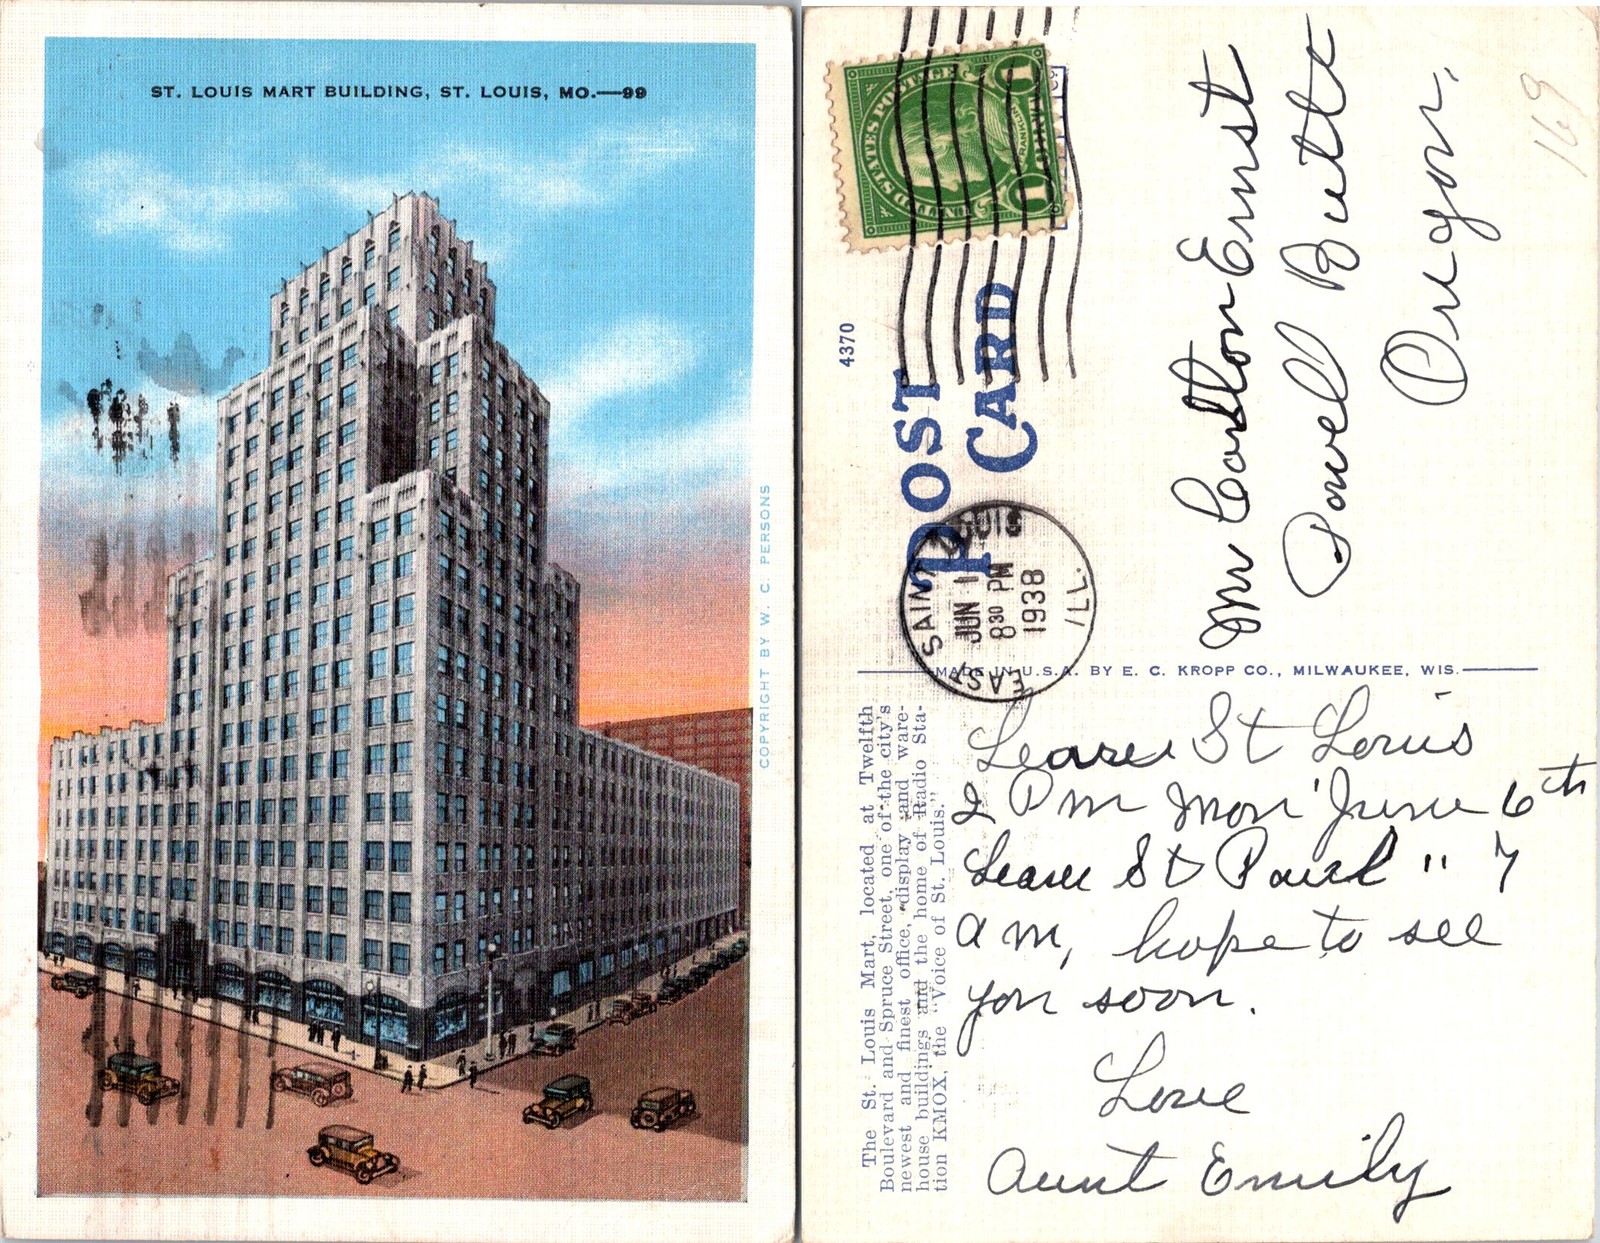 ST. LOUIS MART BUILDING, ST. LOUIS, MO.—99
COPYRIGHT BY W. C. PERSONS
UNITED STATES POSTAGE
FRANKLIN
1 1
4370
POST
CARD
EAST SAINT LOUIS
JUN 1
8 30 PM
1938
ILL.
169
Mr Carlton Ernst
Powell Butte
Oregon.
MADE IN U.S.A. BY E. C. KROPP CO., MILWAUKEE, WIS.
The St. Louis Mart, located at Twelfth
Boulevard and Spruce Street, one of the city's
newest and finest office, display and ware-
house buildings and the home of Radio Sta-
tion KMOX, the "Voice of St. Louis."
Leave St Louis
2 Pm Mon June 6th
Leave St Paul " 7
am, hope to see
you soon.
Love
Aunt Emily